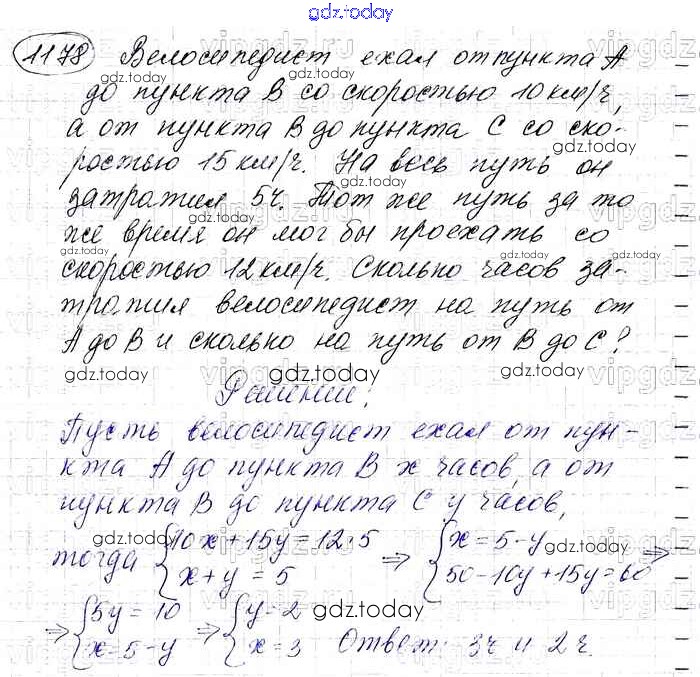 gdz.today
1178 Велосипедист ехал от пункта А
до пункта В со скоростью 10 км/ч,
а от пункта В до пункта С со ско-
ростью 15 км/ч. На весь путь он
затратил 5ч. Тот же путь за то
же время он мог бы проехать со
скоростью 12 км/ч. Сколько часов за-
тратил велосипедист на путь от
А до В и сколько на путь от В до С?
Решение:
Пусть велосипедист ехал от пун-
кта А до пункта В x часов, а от
пункта В до пункта С y часов,
тогда {10x+15y=12·5 x+y=5 ⇒ {x=5-y 50-10y+15y=60 ⇒
⇒ {5y=10 x=5-y ⇒ {y=2 x=3 Ответ: 3ч и 2ч.